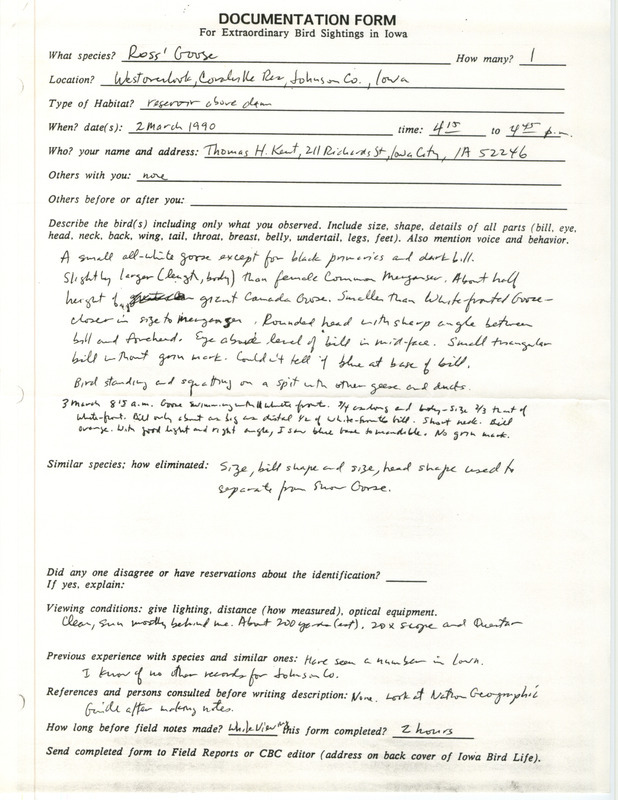 DOCUMENTATION FORM
For Extraordinary Bird Sightings in Iowa
What species? Ross' Goose How many? 1
Location? Westoverlook, Coralville Res, Johnson Co., Iowa
Type of Habitat? reservoir above dam
When? date(s): 2 March 1990 time: 4 15 to 4 45 p.m.
Who? your name and address: Thomas H. Kent, 211 Richards St, Iowa City, IA 52246
Others with you: none
Others before or after you:
Describe the bird(s) including only what you observed. Include size, shape, details of all parts (bill, eye,
head, neck, back, wing, tail, throat, breast, belly, undertail, legs, feet). Also mention voice and behavior.
A small all-white goose except for black primaries and dark bill.
Slightly larger (length, body) than female Common Merganser. About half
height of giant Canada Goose. Smaller than White-fronted Goose-
closer in size to merganser. Rounded head with sharp angle between
bill and forehead. Eye above level of bill in mid-face. Small triangular
bill without grin mark. Couldn't tell if blue at base of bill.
Bird standing and squatting on a spit with other geese and ducks.
3 March 815 a.m. Goose swimming with White-fronts. 3/4 as long and body-size 2/3 that of
White-front. Bill only about as big as distal 1/2 of White-fronts bill. Short neck. Bill
orange. With good light and right angle, I saw blue base to mandible. No grin mark.
Similar species; how eliminated: Size, bill shape and size, head shape used to
separate from Snow Goose.
Did any one disagree or have reservations about the identification?
If yes, explain:
Viewing conditions: give lighting, distance (how measured), optical equipment.
Clear, sun mostly behind me. About 200 yards (est). 20x scope and Questar
Previous experience with species and similar ones: Have seen a number in Iowa.
I know of no other records for Johnson Co.
References and persons consulted before writing description: None. Look at Nation Geographic
Guide after making notes.
How long before field notes made? While viewing this form completed? 2 hours
Send completed form to Field Reports or CBC editor (address on back cover of Iowa Bird Life).